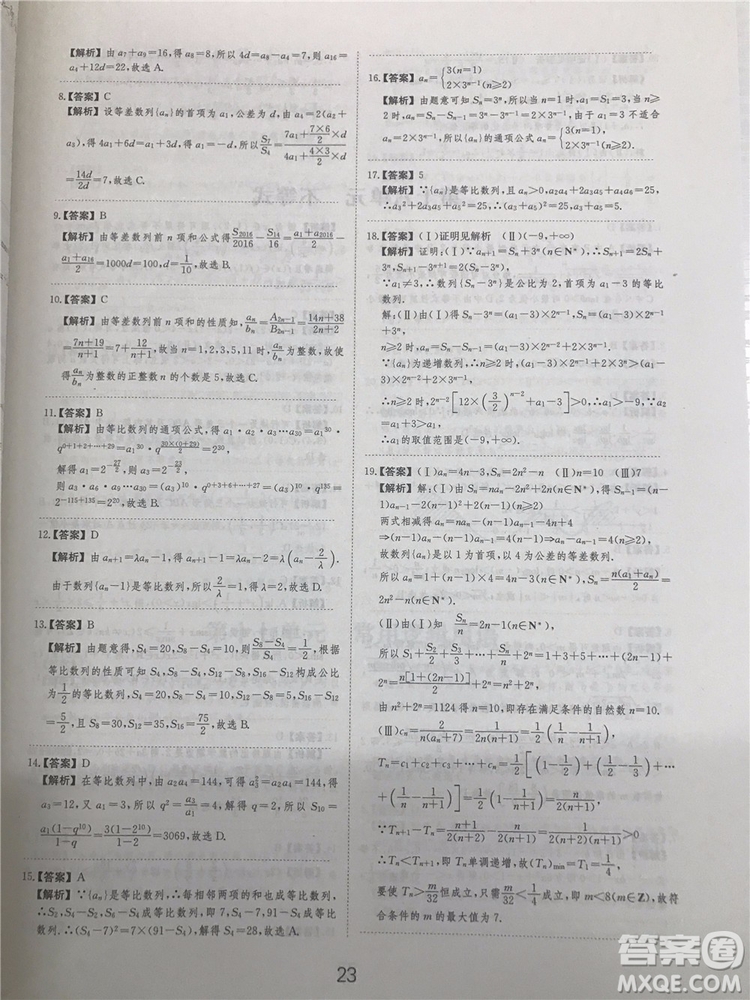 【解析】由 a₇+a₉=16，得 a₈=8，所以 4d=a₁₂-a₈=-，所以 a₁₆=
a₄+12d=22，故选 A.
8.【答案】C
【解析】设等差数列{aₙ}的首项为 a₁，公差为 d，由 a₄=2(a₂+
a₃)，得 4a₁+6d=a₁+3d，所以 S₇/S₄=(7a₁+(7×6)/2×d)/(4a₁+(4×3)/2×d)
=14d/2d=7，故选 C.
9.【答案】B
【解析】由等差数列前 n 项和公式得 S₂₀₁₆/2016-S₁₆/16=(a₁+a₂₀₁₆)/2-
(a₁+a₁₆)/2=1000d=100，d=1/10，故选 B.
10.【答案】C
【解析】由等差数列前 n 项和的性质知，aₙ/bₙ=A₂ₙ₋₁/B₂ₙ₋₁=(14n+38)/(2n+2)
=(7n+19)/(n+1)=7+12/(n+1)，故当 n=1,2,3,5,11 时，aₙ/bₙ为整数，故使
得aₙ/bₙ为整数的正整数 n 的个数是 5，故选 C.
11.【答案】B
【解析】由等比数列的通项公式，得 a₁·a₂·a₃…a₃₀=a₁³⁰·
q^(0+1+2+…+29)=a₁³⁰·q^(30×(0+29)/2)，
解得 a₁=2^(-27/2)，所以 a₃=2^(-23/2)，
则 a₃·a₆·a₉…a₃₀=(a₃)¹⁰·q^(0+3+6+…+27)=(a₃)¹⁰·q¹³⁵=
2^(-115+135)=2²⁰，故选 B.
12.【答案】D
【解析】由 aₙ₊₁=λaₙ-1，得 aₙ₊₁-1=λaₙ-2=λ(aₙ-2/λ).
由于数列{aₙ-1}是等比数列，所以2/λ=1，得 λ=2，故选 D.
13.【答案】B
【解析】由题意得，S₄，S₈-S₄，S₁₂-S₈成等比数列，则(S₈-S₄)/S₄=
5/10=1/2，因为 S₄=10，S₈-S₄=5，所以 S₄，S₈-S₄，S₁₂-S₈构成公比
为1/2的等比数列，S₄=10，S₈-S₄=5，S₁₂-S₈=5/2，S₁₆-S₁₂
=5/2，且 S₈=15，S₁₆=75/2，故选 B.
14.【答案】D
【解析】在等比数列中，由 a₂a₄=144，可得 a₃²=a₂a₄=144，得
a₃=12，又 a₁=3，所以 q²=a₃/a₁=4，得 q=2，所以 S₁₀=
a₁(1-q¹⁰)/(1-q)=3(1-2¹⁰)/(1-2)=3069，故选 D.
15.【答案】A
【解析】∵{aₙ}是等比数列，∴每相邻两项的和也成等比数列，
∴S₂，S₄-S₂，S₆-S₄成等比数列，即 7，S₄-7，91-S₄成等比数
列.∴(S₄-7)²=7×(91-S₄)，解得 S₄=28，故选 A.
16.【答案】aₙ={3(n=1) 2×3ⁿ⁻¹(n≥2)
【解析】由题意可知 Sₙ=3ⁿ，所以 a₁=S₁=3，当 n≥2 时，
aₙ=Sₙ-Sₙ₋₁=3ⁿ-3ⁿ⁻¹=2×3ⁿ⁻¹，由于 a₁=3 不适合
aₙ=2×3ⁿ⁻¹，所以{aₙ}的通项公式 aₙ={3(n=1) 2×3ⁿ⁻¹(n≥2).
17.【答案】5
【解析】∵{aₙ}是等比数列，且 aₙ>0，a₂a₄+2a₃a₅+a₄a₆=25，
∴a₃²+2a₃a₅+a₅²=25，∴(a₃+a₅)²=25，∴a₃+a₅=5.
18.【答案】（Ⅰ）证明见解析 （Ⅱ）(-9，+∞)
【解析】证明：（Ⅰ）∵aₙ₊₁=Sₙ+3ⁿ(n∈N*)，∴Sₙ₊₁=2Sₙ+
3ⁿ，∴Sₙ₊₁-3ⁿ⁺¹=2(Sₙ-3ⁿ).
∵a₁≠3，∴数列{Sₙ-3ⁿ}是公比为 2，首项为 a₁-3 的等比
数列.
解：（Ⅱ）由（Ⅰ）得 Sₙ-3ⁿ=(a₁-3)×2ⁿ⁻¹，∴Sₙ=(a₁-3)×
2ⁿ⁻¹+3ⁿ，
n≥2 时，aₙ=Sₙ-Sₙ₋₁=(a₁-3)×2ⁿ⁻²+2×3ⁿ⁻¹，
∵{aₙ}为递增数列，∴n≥2 时，(a₁-3)×2ⁿ⁻¹+2×3ⁿ>(a₁-
3)×2ⁿ⁻²+2×3ⁿ⁻¹，
∴n≥2 时，2ⁿ⁻²[12×(3/2)ⁿ⁻²+a₁-3]>0，∴a₁>-9，∵a₂
=a₁+3>a₁，
∴a₁ 的取值范围是(-9，+∞).
19.【答案】（Ⅰ）aₙ=4n-3，Sₙ=2n²-n （Ⅱ）n=10 （Ⅲ）7
【解析】解：（Ⅰ）由 Sₙ=naₙ-2n(n-1)，得 Sₙ₋₁=(n-
1)aₙ₋₁-2(n-1)(n-2)(n≥2)
两式相减得 aₙ=naₙ-(n-1)aₙ₋₁-4(n-1)
⇒(n-1)aₙ-(n-1)aₙ₋₁=4(n-1)⇒aₙ-aₙ₋₁=4(n≥2)，
故数列{aₙ}是以 1 为首项，以 4 为公差的等差数列.
所以 aₙ=1+(n-1)×4=4n-3(n∈N*)，Sₙ=n(a₁+aₙ)/2=
2n²-n(n∈N*).
（Ⅱ）由（Ⅰ）知 Sₙ/n=2n-1(n∈N*)，
所以 S₁+S₂/2+S₃/3+…+Sₙ/n+2ⁿ=1+3+5+…+(2n-1)+2ⁿ
=n[1+(2n-1)]/2+2ⁿ=n²+2ⁿ，
由 n²+2ⁿ=1124 得 n=10，即存在满足条件的自然数 n=10.
（Ⅲ）cₙ=2/(n(aₙ+7))=1/(2n(n+1))=1/2(1/n-1/(n+1))，
Tₙ=c₁+c₂+c₃+…+cₙ=1/2[(1-1/2)+(1/2-1/3)+…+
(1/n-1/(n+1))]=1/2(1-1/(n+1))=n/(2(n+1))，
∵Tₙ₊₁-Tₙ=(n+1)/(2(n+2))-n/(2(n+1))=1/(2(n+2)(n+1))>0
∴Tₙ<Tₙ₊₁，即 Tₙ 单调递增，故 Tₙ≥T₁=1/4，
要使 Tₙ>m/32恒成立，只需m/32<1/4成立，即 m<8(m∈Z)，故符
合条件的 m 的最大值为 7.
23
答案圈
MXQE.COM